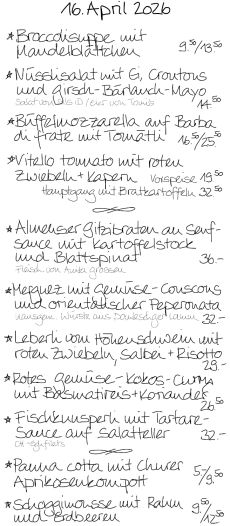 16. April 2026
* Broccolisuppe mit
Mandelblättchen 9.50/13.50
* Nüsslisalat mit Ei, Croutons
und Girsch-Bärlauch-Mayo
14.50
* Büffelmozzarella auf Barba
di frate mit Tomätli 16.50/25.50
* Vitello tonnato mit roten
Zwiebeln + Kapern Vorspeise 19.50
Hauptgang mit Bratkartoffeln 32.50
* Almenser Gitzibraten an Senf-
sauce mit Kartoffelstock
und Blattspinat 36.-
Fleisch von
* Merguez mit Gemüse-Couscous
und orientalischer Peperonata
32.-
* Leberli vom Höhenschwein mit
roten Zwiebeln, Salbei + Risotto
29.-
* Rotes Gemüse-Kokos-Curry
mit Basmatireis + Koriander
26.50
* Fischknusperli mit Tartare-
Sauce auf Salatteller 32.-
* Panna cotta mit Churer
Aprikosenkompott 5/9.50
* Schoggimousse mit Rahm
und Erdbeeren 9.50/12.50